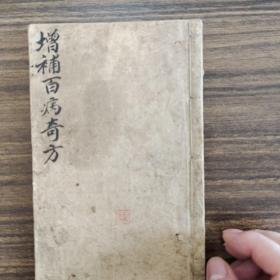 增補百病奇方